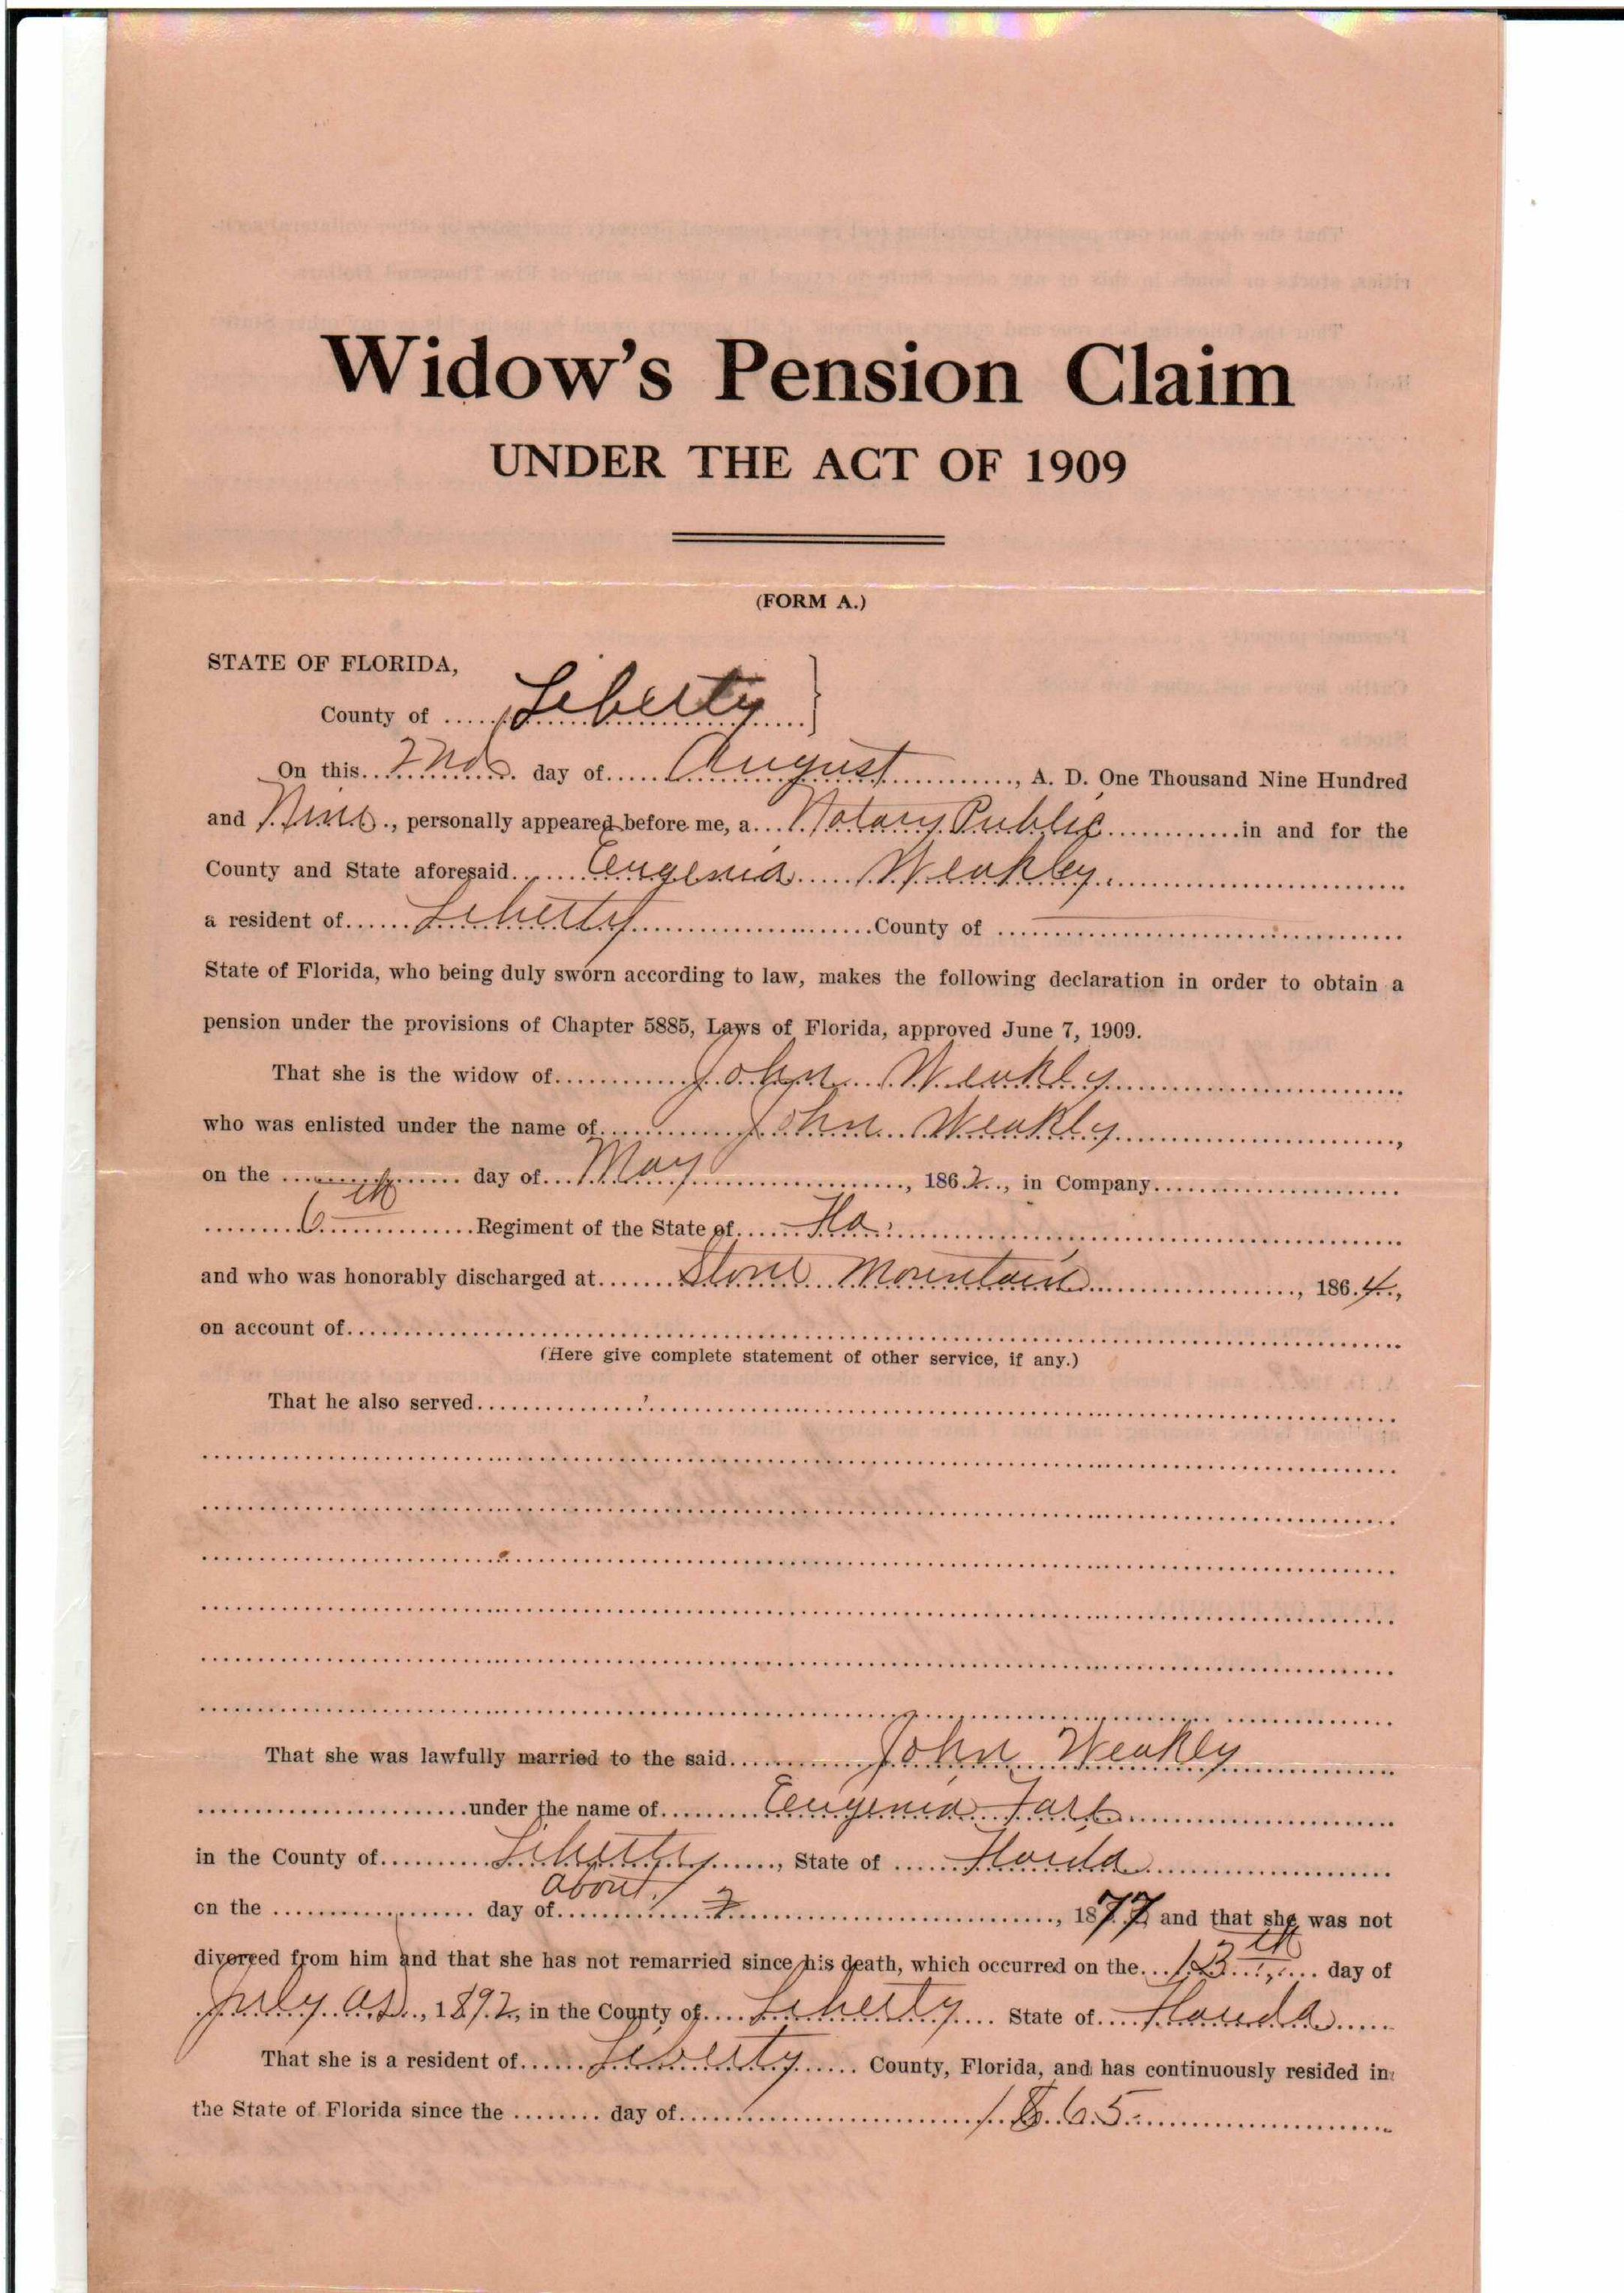 Widow's Pension Claim
UNDER THE ACT OF 1909
(FORM A.)
STATE OF FLORIDA,
County of Liberty
On this 2nd day of August, A. D. One Thousand Nine Hundred
and Nine, personally appeared before me, a Notary Public in and for the
County and State aforesaid Eugenia Weakley
a resident of Liberty County of
State of Florida, who being duly sworn according to law, makes the following declaration in order to obtain a
pension under the provisions of Chapter 5885, Laws of Florida, approved June 7, 1909.
That she is the widow of John Weakley
who was enlisted under the name of John Weakley,
on the day of May, 1862, in Company
6th Regiment of the State of Fla.
and who was honorably discharged at Stone Mountain, 1864,
on account of
(Here give complete statement of other service, if any.)
That he also served
That she was lawfully married to the said John Weakley
under the name of Eugenia
in the County of Liberty, State of Florida
about
on the day of, 1877, and that she was not
divorced from him and that she has not remarried since his death, which occurred on the 13th day of
July A.D., 1892, in the County of Liberty State of Florida
That she is a resident of Liberty County, Florida, and has continuously resided in
the State of Florida since the day of 1865